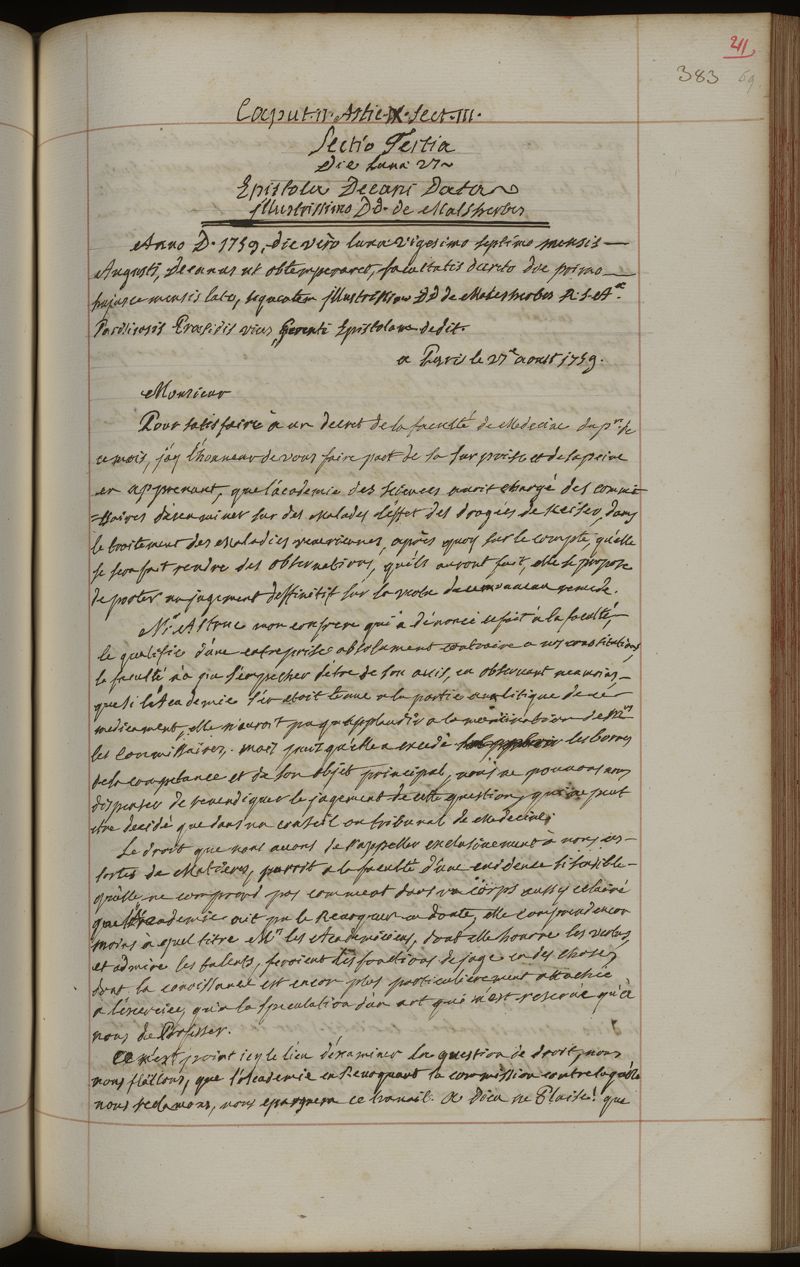 211
383 69
Caput. II. Artic. IX. Sect. III.
Sectio Tertia
Die Lunæ 27
Epistola Decani Data
illustrissimo D.d. de Malsherbes
Anno D. 1759, die vero lunæ vigesimo septimo mensis
Augusti, Decanus ut obtemperaret, facultatis decreto die primo
hujusce mensis lato, sequentem illustrissimo DD de Malesherbes R. S. Aæ.
Parisiensis Præsidis vices Gerenti Epistolam dedit.
a Paris le 27e aoust 1759.
Monsieur
Pour satisfaire a un decret de la faculté de Medecine du pr. de
ce mois, j'ay l'honneur de vous faire part de sa surprise et de sa peine
en apprenant, que l'academie des sciences auroit chargé des commis
=saires d'examiner sur des Malades l'effet des dragées de Keiser, dans
le traitement des Maladies veneriennes, après quoy sur le compte, qu'elle
se seroit fait rendre des observations, qu'ils auront fait, elle se propose
de porter un jugement deffinitif sur la valeur de ce nouveau remede.
Mr Astruc mon confrere qui a dénoncé ce fait à la faculté,
le qualifie d'une entreprise absolument contraire a nos constitutions,
la faculté n'a pu s'empecher d'etre de son avis, en observant neanmoins
que si l'Academie s'en etoit tenue a la partie analitique de ce
medicament, elle n'auroit pu qu'applaudir a la nomination de Mrs
les Commissaires, mais puisqu'elle a excedé les bornes
de sa competance et de son objet principal, nous ne pouvons nous
dispenser de revendiquer le jugement de cette question, qui ne peut
etre decidé que dans un conseil ou tribunal de Medecine.
Le droit que nous avons de rappeller exclusivement à nous ces
sortes de Matieres, paroit a la faculté d'une evidence si sensible
qu'elle ne comprend pas comment dans un corps aussy eclairé
que l'Academie ait pu le Revoquer en doute, elle comprend encor
moins à quel titre Mrs les Academiciens, dont elle honore les vertus,
et admire les talents, feroient les fonctions de juge en des choses
dont la connoissance est encor plus particulierement attachée
a l'exercice, qu'a la speculation d'un art qui n'est reservé qu'à
nous de Professer.
Ce n'est point icy le lieu d'examiner la question de droit, nous
nous flattons, que l'Academie en Revoquant la commission contre laquelle
nous reclamons, nous epargnera ce travail. A Dieu ne Plaise! que